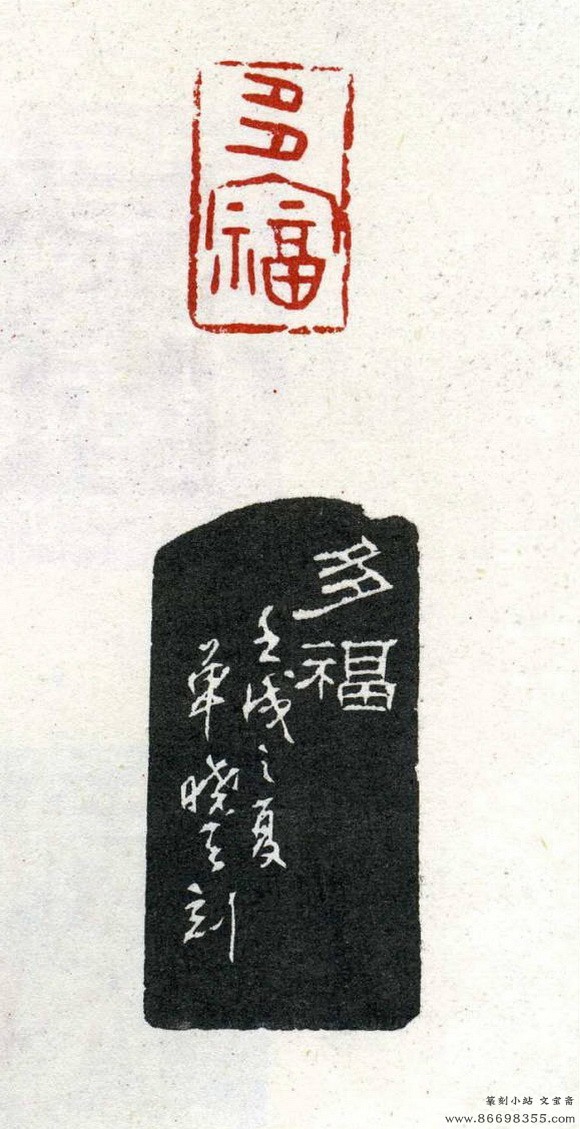 多福
多福
壬戌之夏
單曉天刻
篆刻小站 文宝斋
www.86698355.com